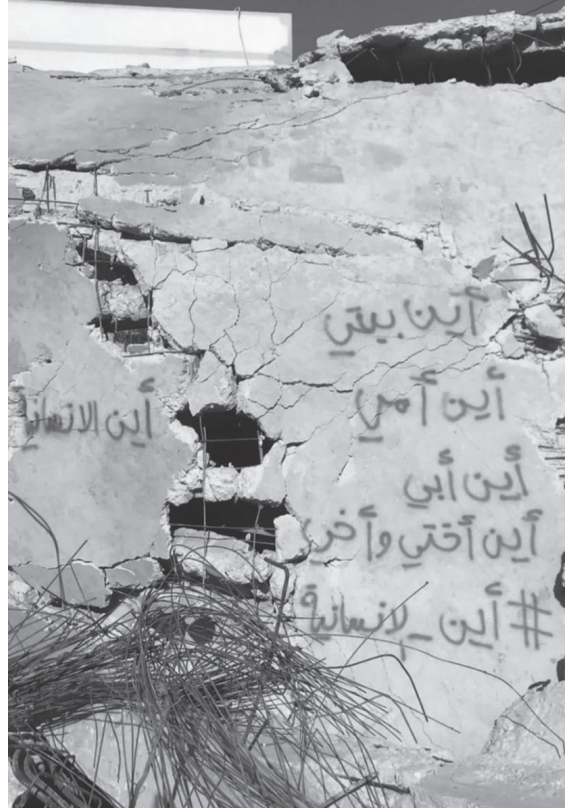 أين بيتي
أين أمي
أين أبي
أين أختي وأخي
#أين_لإنسانية
أين الانساني